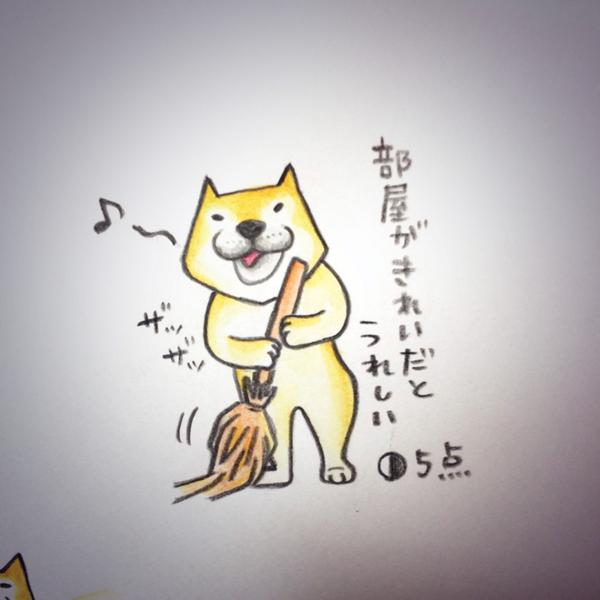 部屋がきれいだと
うれしい
◑5点
ザッ
ザッ